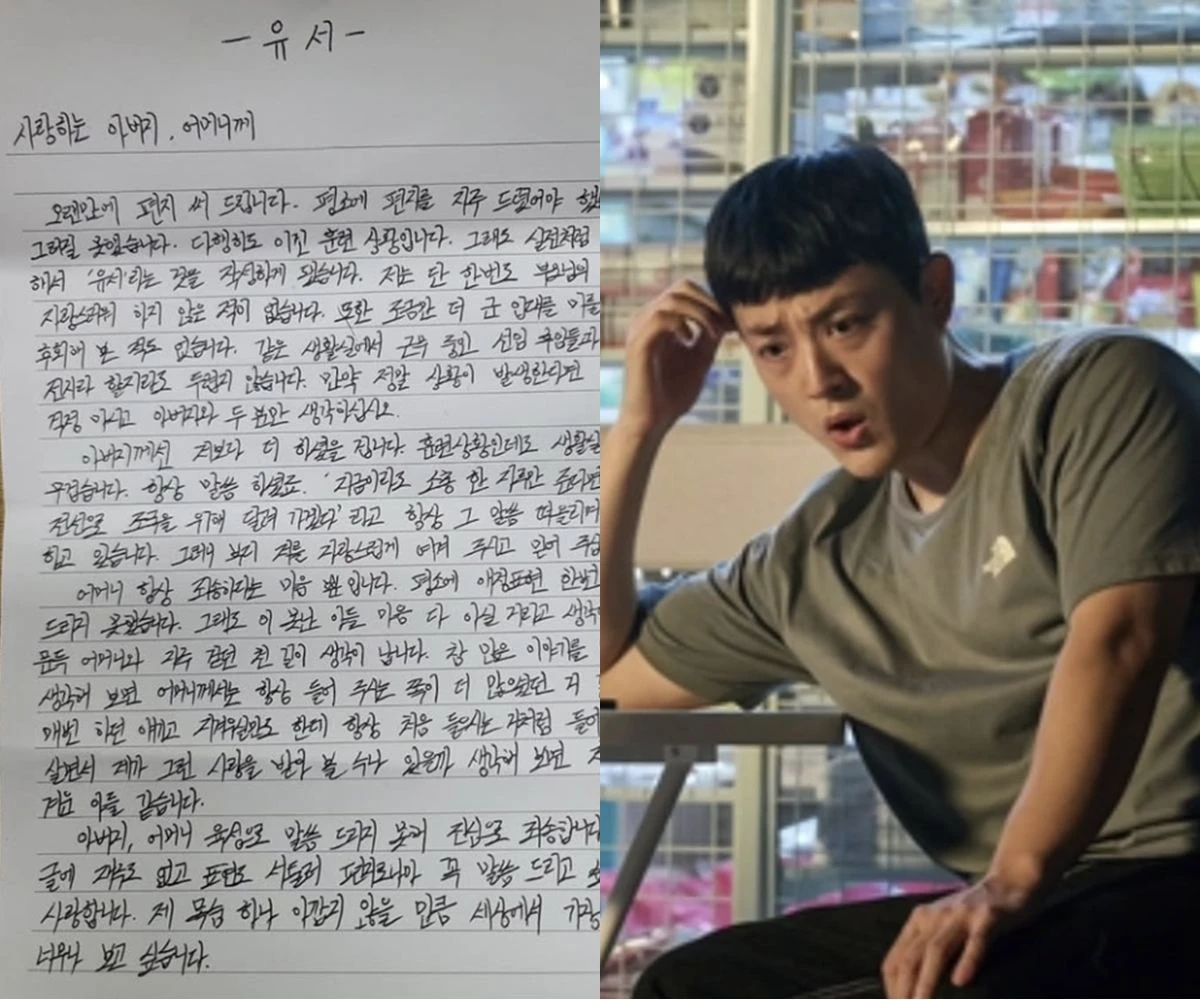 - 유 서 -
사랑하는 아버지, 어머니께
오랜만에 편지 써 드립니다. 평소에 편지를 자주 드렸어야 했
그러질 못했습니다. 다행히도 이건 훈련 상황입니다. 그래도 실전처럼
해서 '유서'라는 것을 작성하게 됐습니다. 저는 단 한번도 부모님의
자랑스러워 하지 않은 적이 없습니다. 또한 조금만 더 군 입대를 미룰
후회해 본 적도 없습니다. 같은 생활실에서 근무 중인 선임 후임들과
전지라 할지라도 두렵지 않습니다. 만약 정말 상황이 발생한다면
걱정 마시고 아버지와 두 분만 생각하십시오.
아버지께선 저보다 더 하셨을 겁니다. 훈련상황인데도 생활실
무겁습니다. 항상 말씀 하셨죠. '지금이라도 소총 한 자루만 준다면
전선으로 조국을 위해 달려 가겠다' 라고 항상 그 말씀 떠올리며
하고 있습니다. 그러니 부디 저를 자랑스럽게 여겨 주시고 믿어 주십
어머니 항상 죄송하다는 마음 뿐 입니다. 평소에 애정표현 한번
드리지 못했습니다. 그래도 이 못난 아들 마음 다 아실 거라고 생각
문득 어머니와 자주 걷던 천 길이 생각이 납니다. 참 많은 이야기를
생각해 보면 어머니께서는 항상 들어 주시는 쪽이 더 많으셨던 거
매번 하던 얘기고 지겨우실만도 한데 항상 처음 들으시는 것처럼 들어
살면서 제가 그런 사랑을 받아 볼 수나 있을까 생각해 보면 저
겨운 아들 같습니다.
아버지, 어머니 육성으로 말씀 드리지 못해 진심으로 죄송합니다
글에 재주도 없고 표현도 서툴러 편지로나마 꼭 말씀 드리고 싶
사랑합니다. 제 목숨 하나 아깝지 않을 만큼 세상에서 가장
너무나 보고 싶습니다.